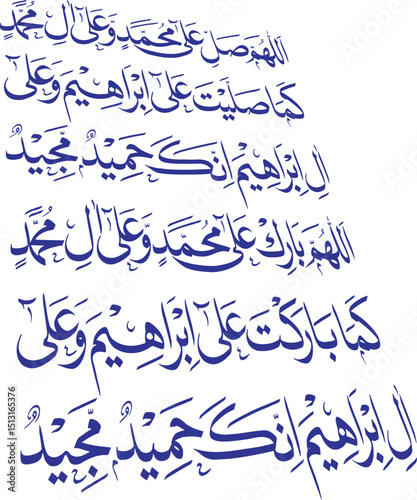 اللهم صل علی محمد وعلی ال محمد
کما صلیت علی ابراهیم وعلی
ال ابراهیم انک حمید مجید
اللهم بارک علی محمد وعلی ال محمد
کما بارکت علی ابراهیم وعلی
ال ابراهیم انک حمید مجید
Adobe Stock | #1513165376